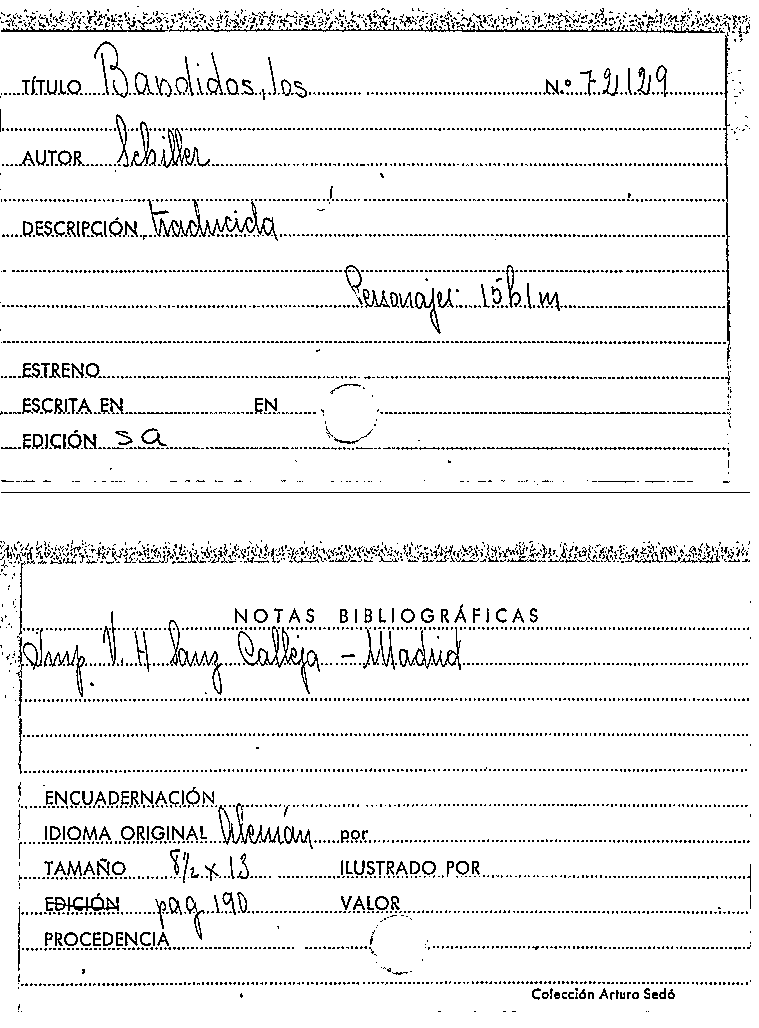 TÍTULO Bandidos, los N.º 72129
AUTOR Schiller
DESCRIPCIÓN traducida
Personajes: 15 h 1 m
ESTRENO
ESCRITA EN EN
EDICIÓN S a
NOTAS BIBLIOGRÁFICAS
Imp. V. H Sanz Calleja - Madrid
ENCUADERNACIÓN
IDIOMA ORIGINAL Alemán por
TAMAÑO 8½ x 13 ILUSTRADO POR
EDICIÓN pag 190 VALOR
PROCEDENCIA
Colección Arturo Sedó